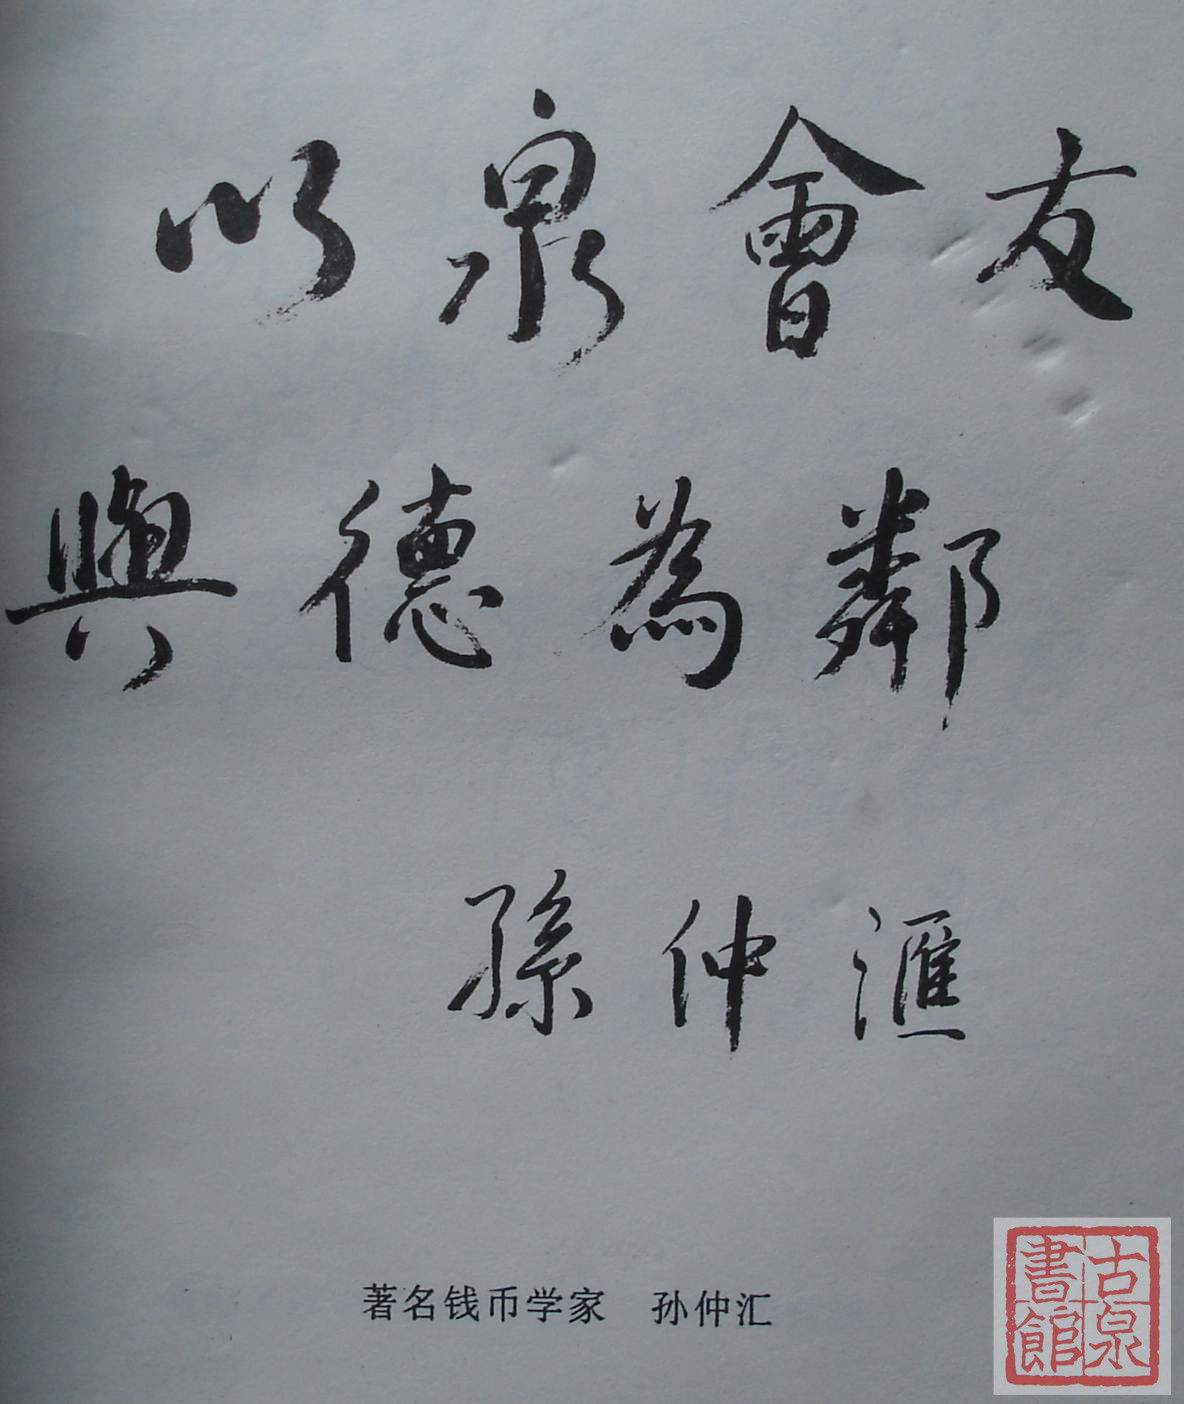 以泉會友
與德為鄰
孫仲滙
著名钱币学家 孙仲汇
古泉書館